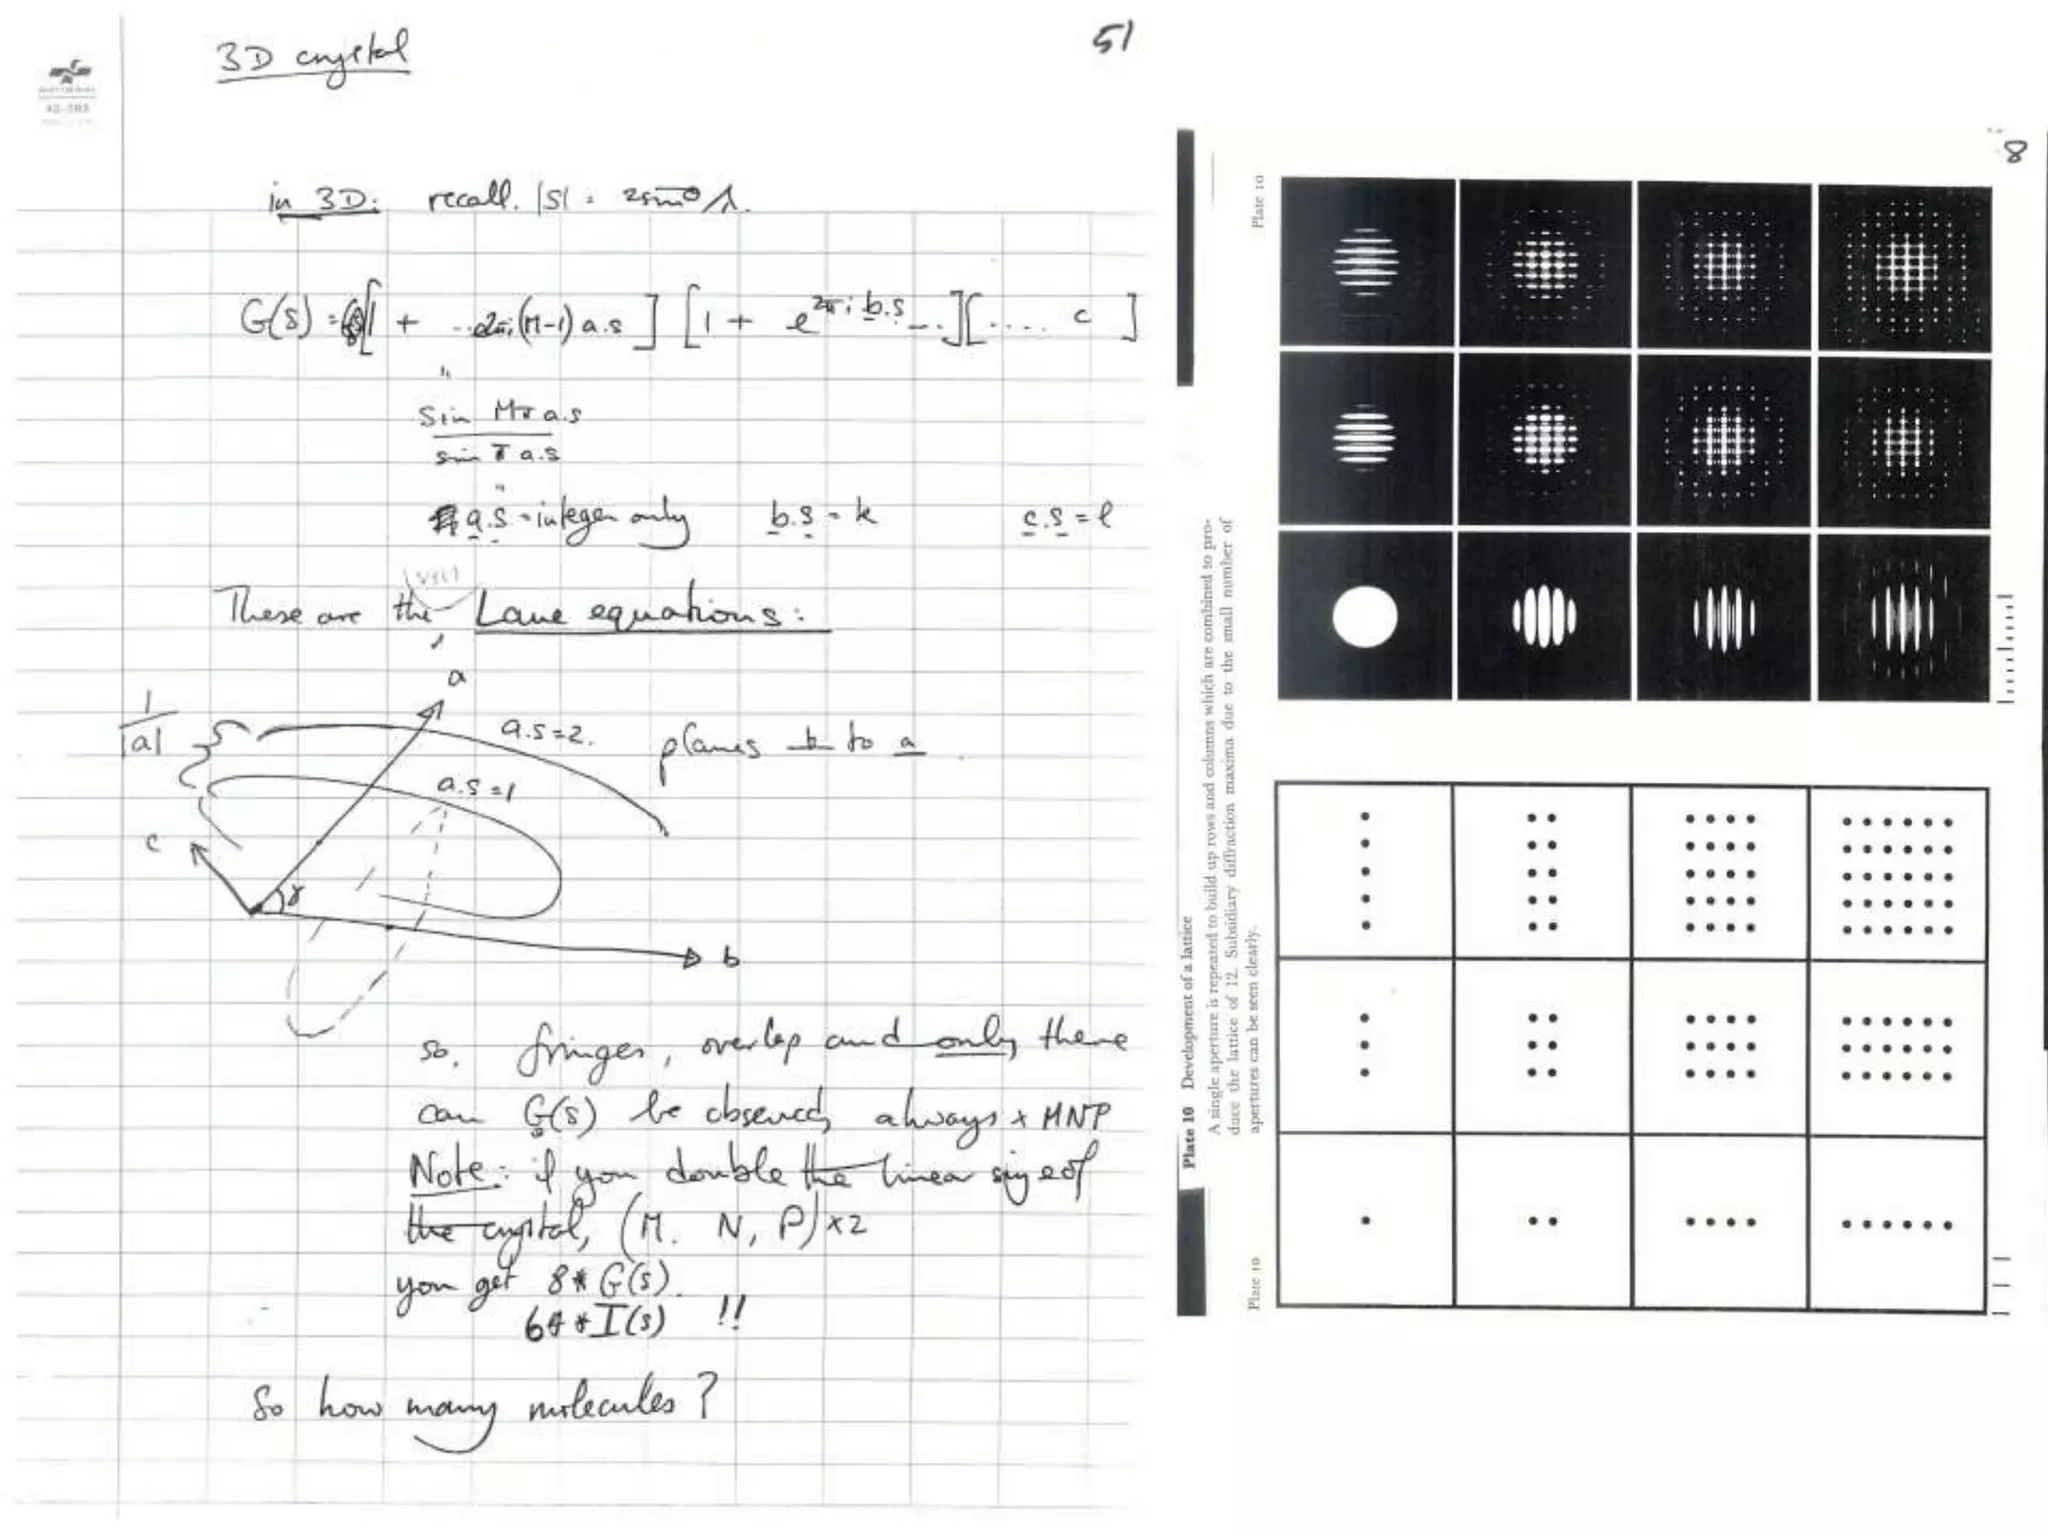 3D crystal
51
in 3D: recall. |S| = 2sinθ/λ.
G(S) = [1 + ...e2πi(M-1)a.s] [1 + e^{2πi b.s} ...][.... c ]
"
sin Mπ a.s
sin π a.s
"
a.s = integer only b.s = k c.s = l
These are the Laue equations:
a
1
|a|
a.s=2. planes b to a
a.s=1
c
γ
b
so, fringes, overlap and only there
can G(s) be observed, always x MNP
Note: if you double the linear size of
the crystal, (M. N, P) x2
you get 8 * G(s).
64 * I(s) !!
So how many molecules?
8
Plate 10
Plate 10 Development of a lattice
A single aperture is repeated to build up rows and columns which are combined to pro-
duce the lattice of 12. Subsidiary diffraction maxima due to the small number of
apertures can be seen clearly.
Plate 10